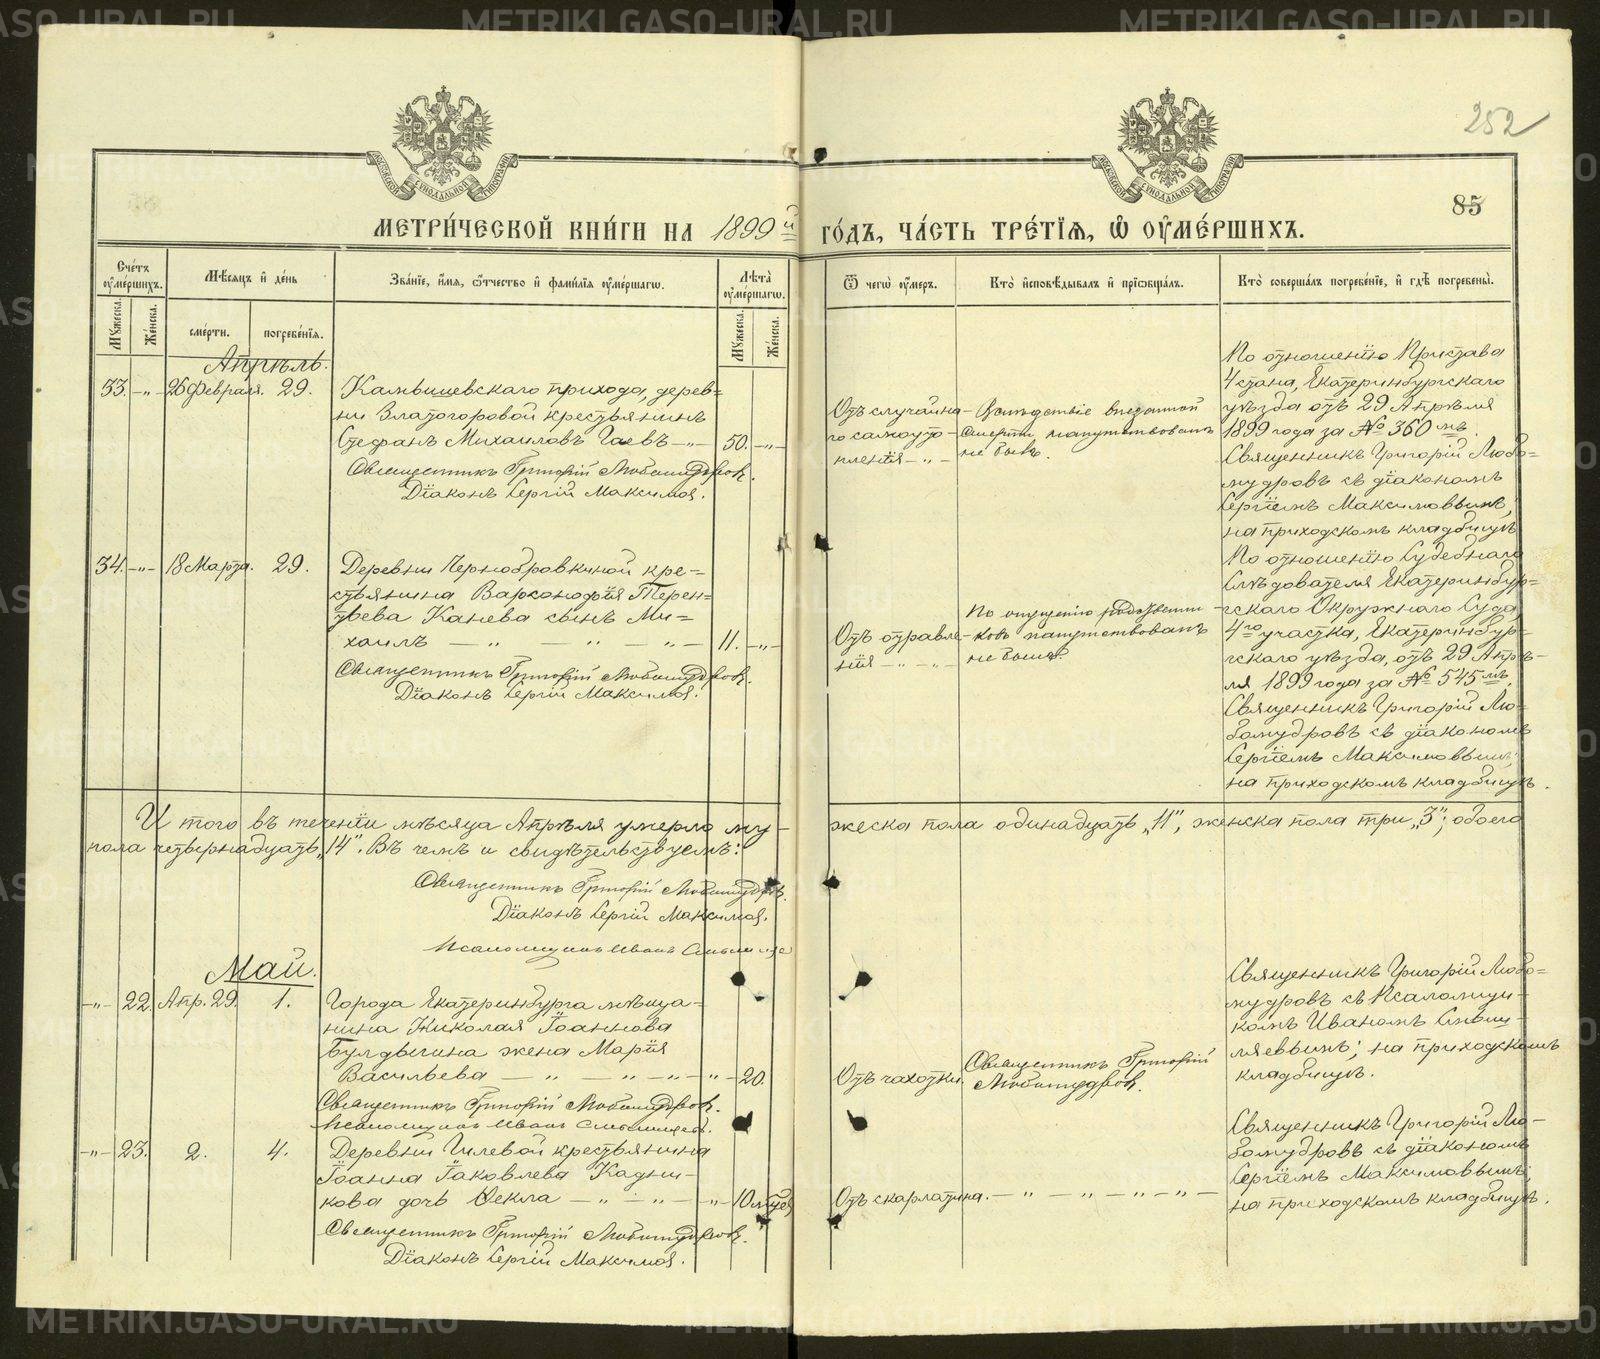 252
85
МЕТРИ́ЧЕСКОЙ КНИ́ГИ НА 1899й ГО́ДЪ, ЧА́СТЬ ТРЕ́ТІЯ, Ѡ ОУМЕ́РШИХЪ.
Сче́тъ оуме́ршихъ.
Мѣ́сяцъ и҆ де́нь
Зва́нїе, и҆́мя, ѻ҆́тчество и҆ фами́лїя оуме́ршагѡ.
Лѣта̀ оуме́ршагѡ.
Ѿ чегѡ̀ оу҆́меръ.
Кто̀ и҆сповѣ́дывалъ и҆ прїѡбща́лъ.
Кто̀ соверша́лъ погребе́нїе, и҆ гдѣ̀ погребены̀.
Мꙋ́жеска.
Же́нска.
сме́рти.
погребе́нїя.
Мꙋ́жеска.
Же́нска.
Апрѣль.
33. -„- 26 Февраля. 29.
Камышевскаго прихода, дерев=
ни Златогоровой крестьянинъ
Стефанъ Михаиловъ Гаевъ -„- 50. -„-
Священникъ Григорій Любомудровъ.
Діаконъ Сергій Максимов.
Отъ случайна-
го самоуто-
пленія -„-
Вслѣдствіе внезапной
смерти напутствованъ
не былъ.
По отношенію Пристава
4 стана, Екатеринбургскаго
уѣзда отъ 29 Апрѣля
1899 года за № 360мъ.
Священникъ Григорій Любо=
мудровъ съ діакономъ
Сергіемъ Максимовымъ,
на приходскомъ кладбищѣ
34. -„- 18 Марта. 29.
Деревни Чернобровкиной кре=
стьянина Варсонофія Терен=
тьева Канева сынъ Ми=
хаилъ — „ — „ — „ — 11. -„-
Священникъ Григорій Любомудровъ.
Діаконъ Сергій Максимов.
Отъ отравле-
нія -„-„-
По опущенію родственни
ковъ напутствованъ
не былъ.
По отношенію Судебнаго
Слѣдователя Екатеринбур=
гскаго Окружнаго Суда,
4го участка, Екатеринбур=
гскаго уѣзда, отъ 29 Апрѣ-
ля 1899 года за № 545мъ.
Священникъ Григорій Лю=
бомудровъ съ діакономъ
Сергіемъ Максимовымъ;
на приходскомъ кладбищѣ.
И того въ теченіи мѣсяца Апрѣля умерло му-
жеска пола одинадцать „11“, женска пола три „3“; обоего
пола четвернадцать „14“. Въ чемъ и свидѣтельствуемъ:
Священникъ Григорій Любомудровъ.
Діаконъ Сергій Максимов.
Псаломщикъ Иванъ
Май.
-„- 22. Апр. 29. 1.
Города Екатеринбурга мѣща=
нина Николая Іоаннова
Булдыгина жена Марія
Васильева — „ — „ — „ — „ — 20.
Священникъ Григорій Любомудровъ.
Псаломщикъ Иванъ
Отъ чахотки.
Священникъ Григорій
Любомудровъ.
Священникъ Григорій Любо=
мудровъ съ Псаломщи-
комъ Иваномъ Смыш-
ляевымъ; на приходскомъ
кладбищѣ.
-„- 23. 2. 4.
Деревни Гилевой крестьянина
Іоанна Іаковлева Кадни-
кова дочь Ѳекла — „ — „ — „ — 10 мѣся
Священникъ Григорій Любомудровъ.
Діаконъ Сергій Максимов.
Отъ скарлатина. — „ — „ — „ — „ —
Священникъ Григорій Лю-
бомудровъ съ діакономъ
Сергіемъ Максимовымъ;
на приходскомъ кладбищѣ.
METRIKI.GASO-URAL.RU